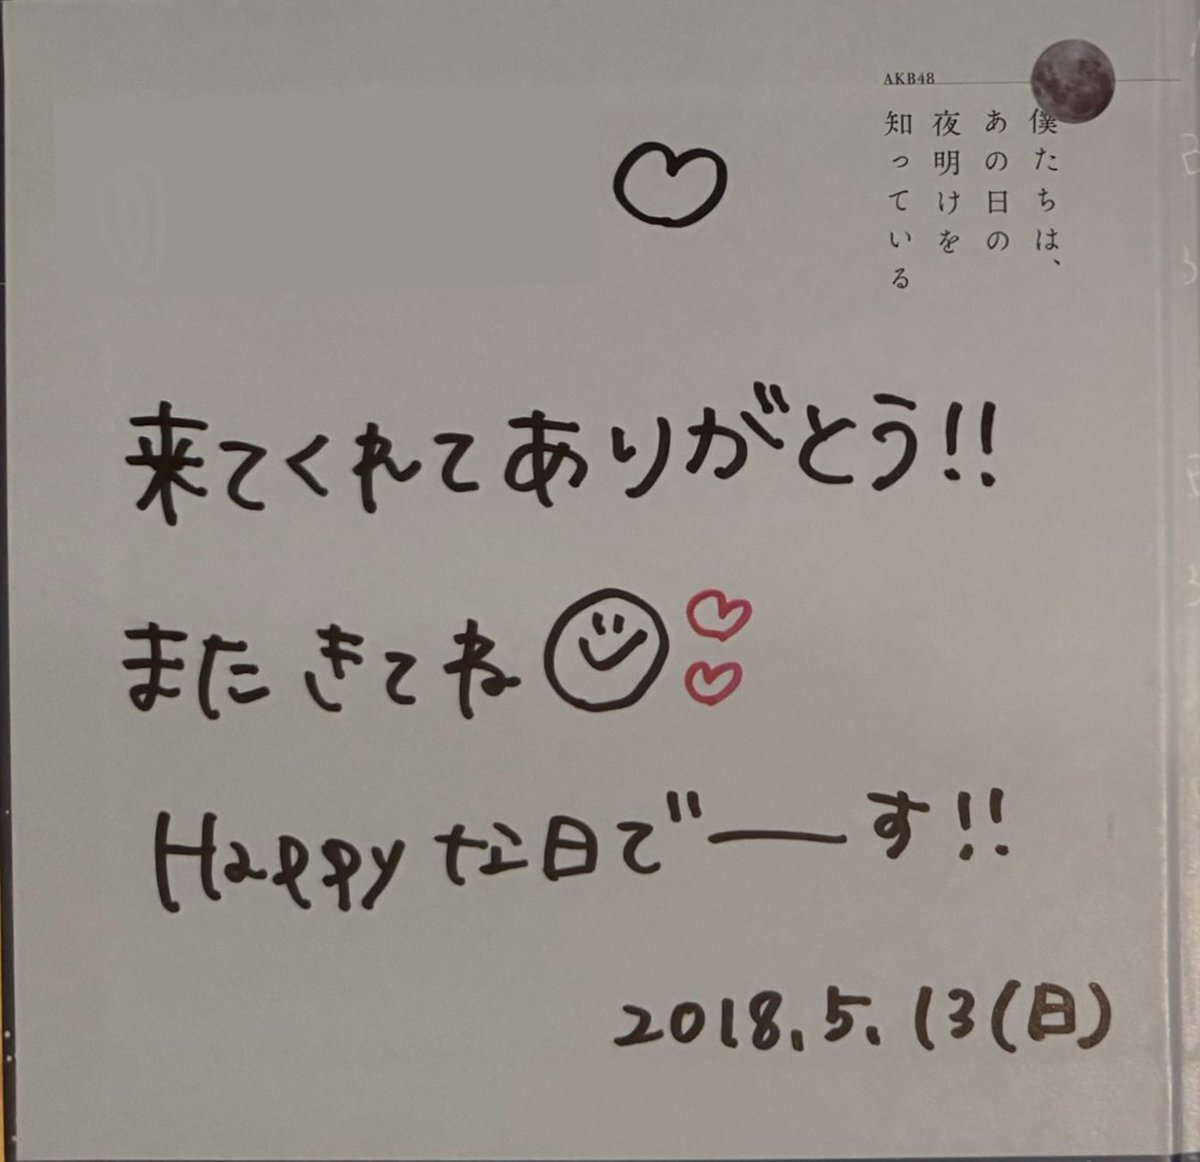 AKB48
僕たちは、
あの日の
夜明けを
知っている
来てくれてありがとう!!
またきてね
Happyな日でーす!!
2018.5.13(日)